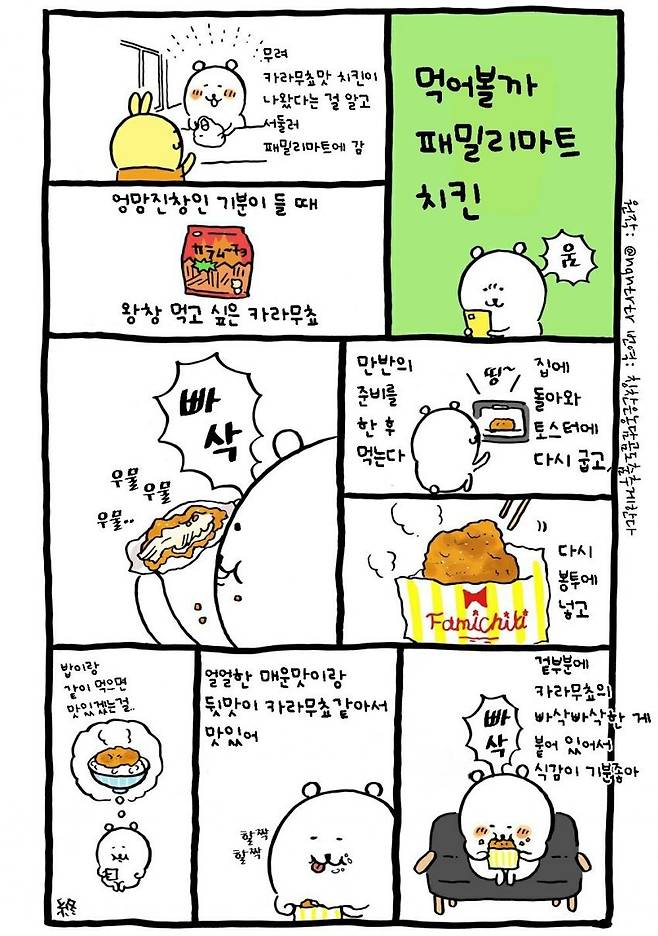 먹어볼까
패밀리마트
치킨
움
무려
카라무쵸맛 치킨이
나왔다는 걸 알고
서둘러
패밀리마트에 감
엉망진창인 기분이 들 때
カラムーチョ
왕창 먹고 싶은 카라무쵸
집에
돌아와
토스터에
다시 굽고,
띵~
만반의
준비를
한 후
먹는다
다시
봉투에
넣고
Famichiki
빠
삭
우물
우물
우물..
겉부분에
카라무쵸의
빠삭빠삭한 게
붙어 있어서
식감이 기분좋아
빠
삭
얼얼한 매운맛이랑
뒷맛이 카라무쵸같아서
맛있어
할짝
할짝
밥이랑
같이 먹으면
맛있겠는걸..
終
원작:
번역: